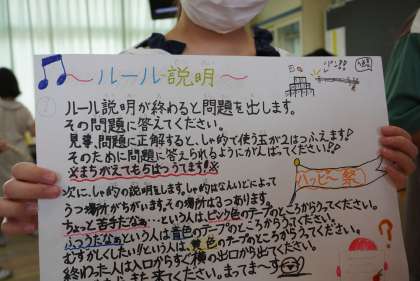 ～ルール説明～
ルール説明が終わると問題を出します。
その問題に答えてください。
見事、問題に正解すると、しゃ的で使う玉が2つふえます!
そのために問題に答えられるようにがんばってください!!
※まちがえても5はつうてます!※
次に、しゃ的の説明をします。しゃ的はなんいどによって
うつ場所がちがいます。その場所は3つあります。
ちょっと苦手だなぁ…という人はピンク色のテープのところからうってください。
ふつうだなぁという人は青色のテープのところからうってください。
むずかしくしたい!!という人は、黄色のテープのところからうってください。
終わった人は入口からすぐ横の出口から出てください。
また来てください。まってま〜す
ハッピー祭